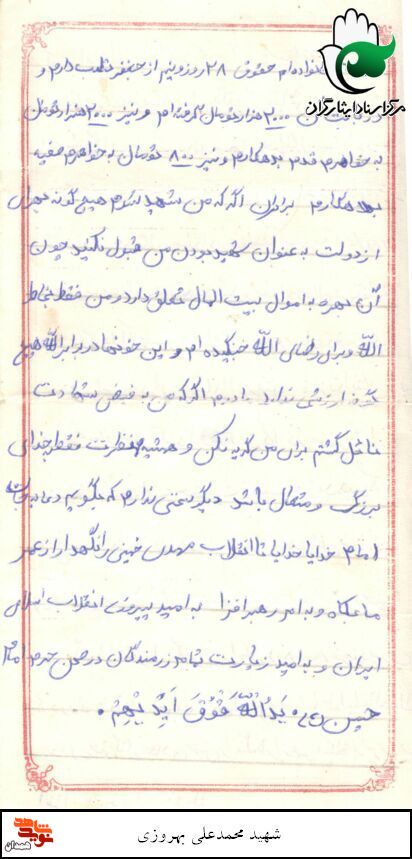 مرکز اسناد ایثارگران
خانواده ام حقوق ۲۸ روز و نیم از جعفر طلب دارم و
۲۰۰۰ هزار تومان گرفته ام و نیز ۲۰۰۰ هزار تومان
به خواهرم قدم بدهکارم و نیز ۸۰۰ تومان به خواهرم صفیه
بدهکارم برادران اگر که من شهید شوم هیچ گونه
از دولت به عنوان شهید بودن من قبول نکنید چون
آن بهره به اموال بیت المال تعلق دارد و من فقط بخاطر
الله و برای رضای الله جنگیده ام و این خونها در برابر الله هیچ
گونه ارزشی ندارد مادرم اگر که من به فیض شهادت
نائل گشتم برای من گریه نکن و همیشه نظرت فقط بخدای
بزرگ و متعال باشد دیگر سخنی ندارم که بگویم دعا به
امام خدایا خدایا تا انقلاب مهدی خمینی را نگهدار از عمر
ما بکاه و به عمر رهبر افزا به امید پیروزی انقلاب اسلامی
ایران و به امید زیارت تمام رزمندگان در صحن حرم امام
حسین (ع) یَدُ اللّٰهِ فَوْقَ اَیْدیهِمْ .
شهید محمدعلی بهروزی
نوید شاهد
همدان